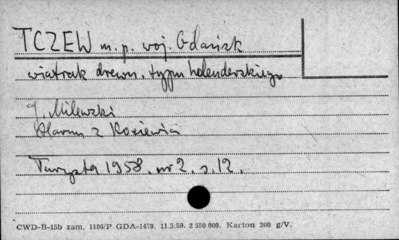 TCZEW m.p. woj. Gdańsk
wiatrak drewn. typu holenderskiego
J. Milewski
z
Turysta 1958. nr 2. s. 12.
CWD-B-15b zam. 1106/P GDA-1479. 11.5.59. 2 550 000. Karton 200 g/V.